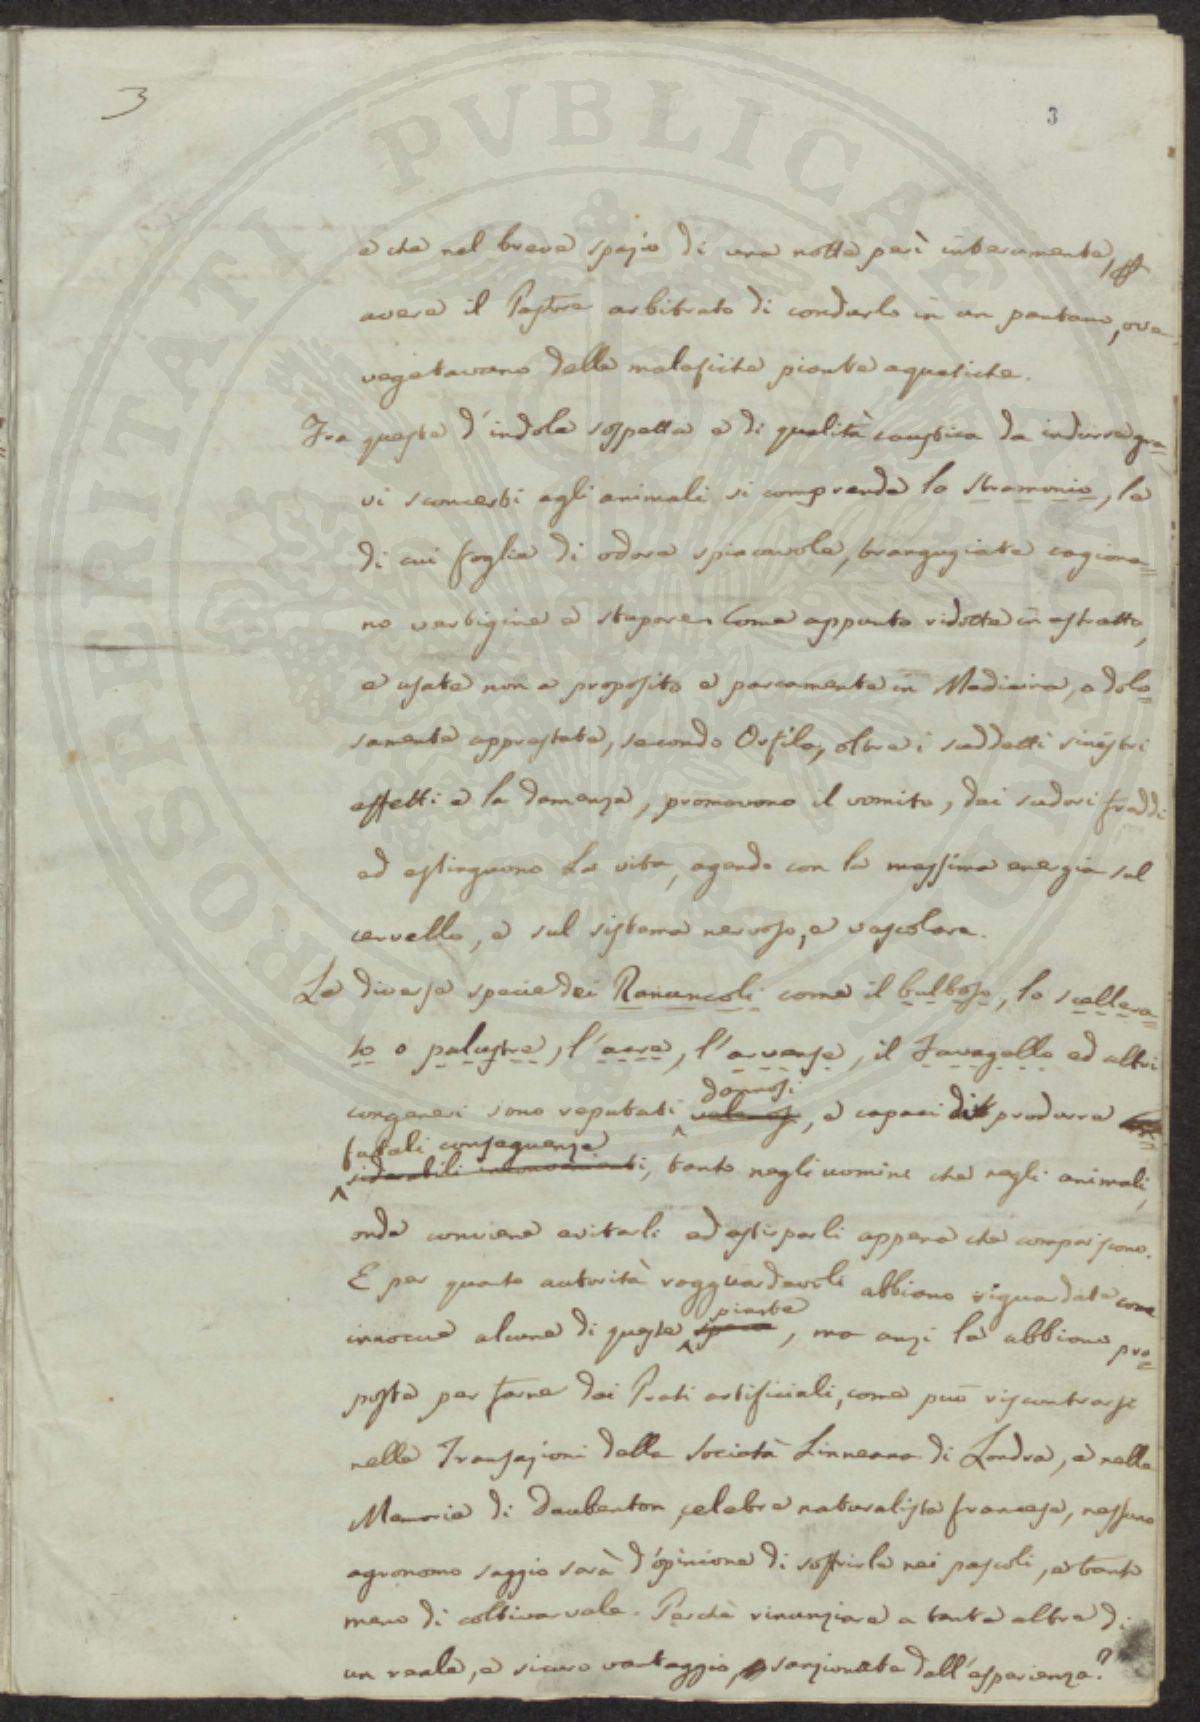 3
3
e che nel breve spazio di una notte perì interamente, per
avere il Pastore arbitrato di condurlo in un pantano, ove
vegetavano delle malefiche piante aquatiche.
Fra queste d'indole sospetta e di qualità caustica da indurre gra=
vi sconcerti agli animali si comprende lo stramonio, le
di cui foglie di odore spiacevole, trangugiate cagiona=
no vertigine e stupore. Come appunto ridotte in estratto,
e usate non a proposito e parcamente in Medicina, o dolo=
samente apprestate, secondo Orfila, oltre i suddetti sinistri
effetti e la demenza, promovono il vomito, dei sudori freddi
ed estinguono la vita, agendo con la massima energia sul
cervello, e sul sistema nervoso, e vascolare.
Le diverse specie dei Ranuncoli come il bulboso, lo scellera=
to o palustre, l'acre, l'arvense, il Favagello ed altri
dannosi
congeneri sono reputati velenosi, e capaci di produrre
fatali conseguenze
siderabili inconvenienti, tanto negli uomini che negli animali,
onde conviene evitarli ed estirparli appena che compariscono.
E per quanto autorità ragguardevoli abbiano riguardate come
piante
innocue alcune di queste specie, ma anzi le abbiano pro=
poste per farne dei Prati artificiali, come può riscontrarsi
nelle Transazioni della Società Linneana di Londra, e nelle
Memorie di Daubenton celebre naturalista francese, nessuno
agronomo saggio sarà d'opinione di soffrirle nei pascoli, e tanto
meno di coltivarvele. Perchè rinunziare a tante altre di
un reale, e sicuro vantaggio, sanzionate dall'esperienza?
PROSPERITATI PVBLICAE AVGENDAE